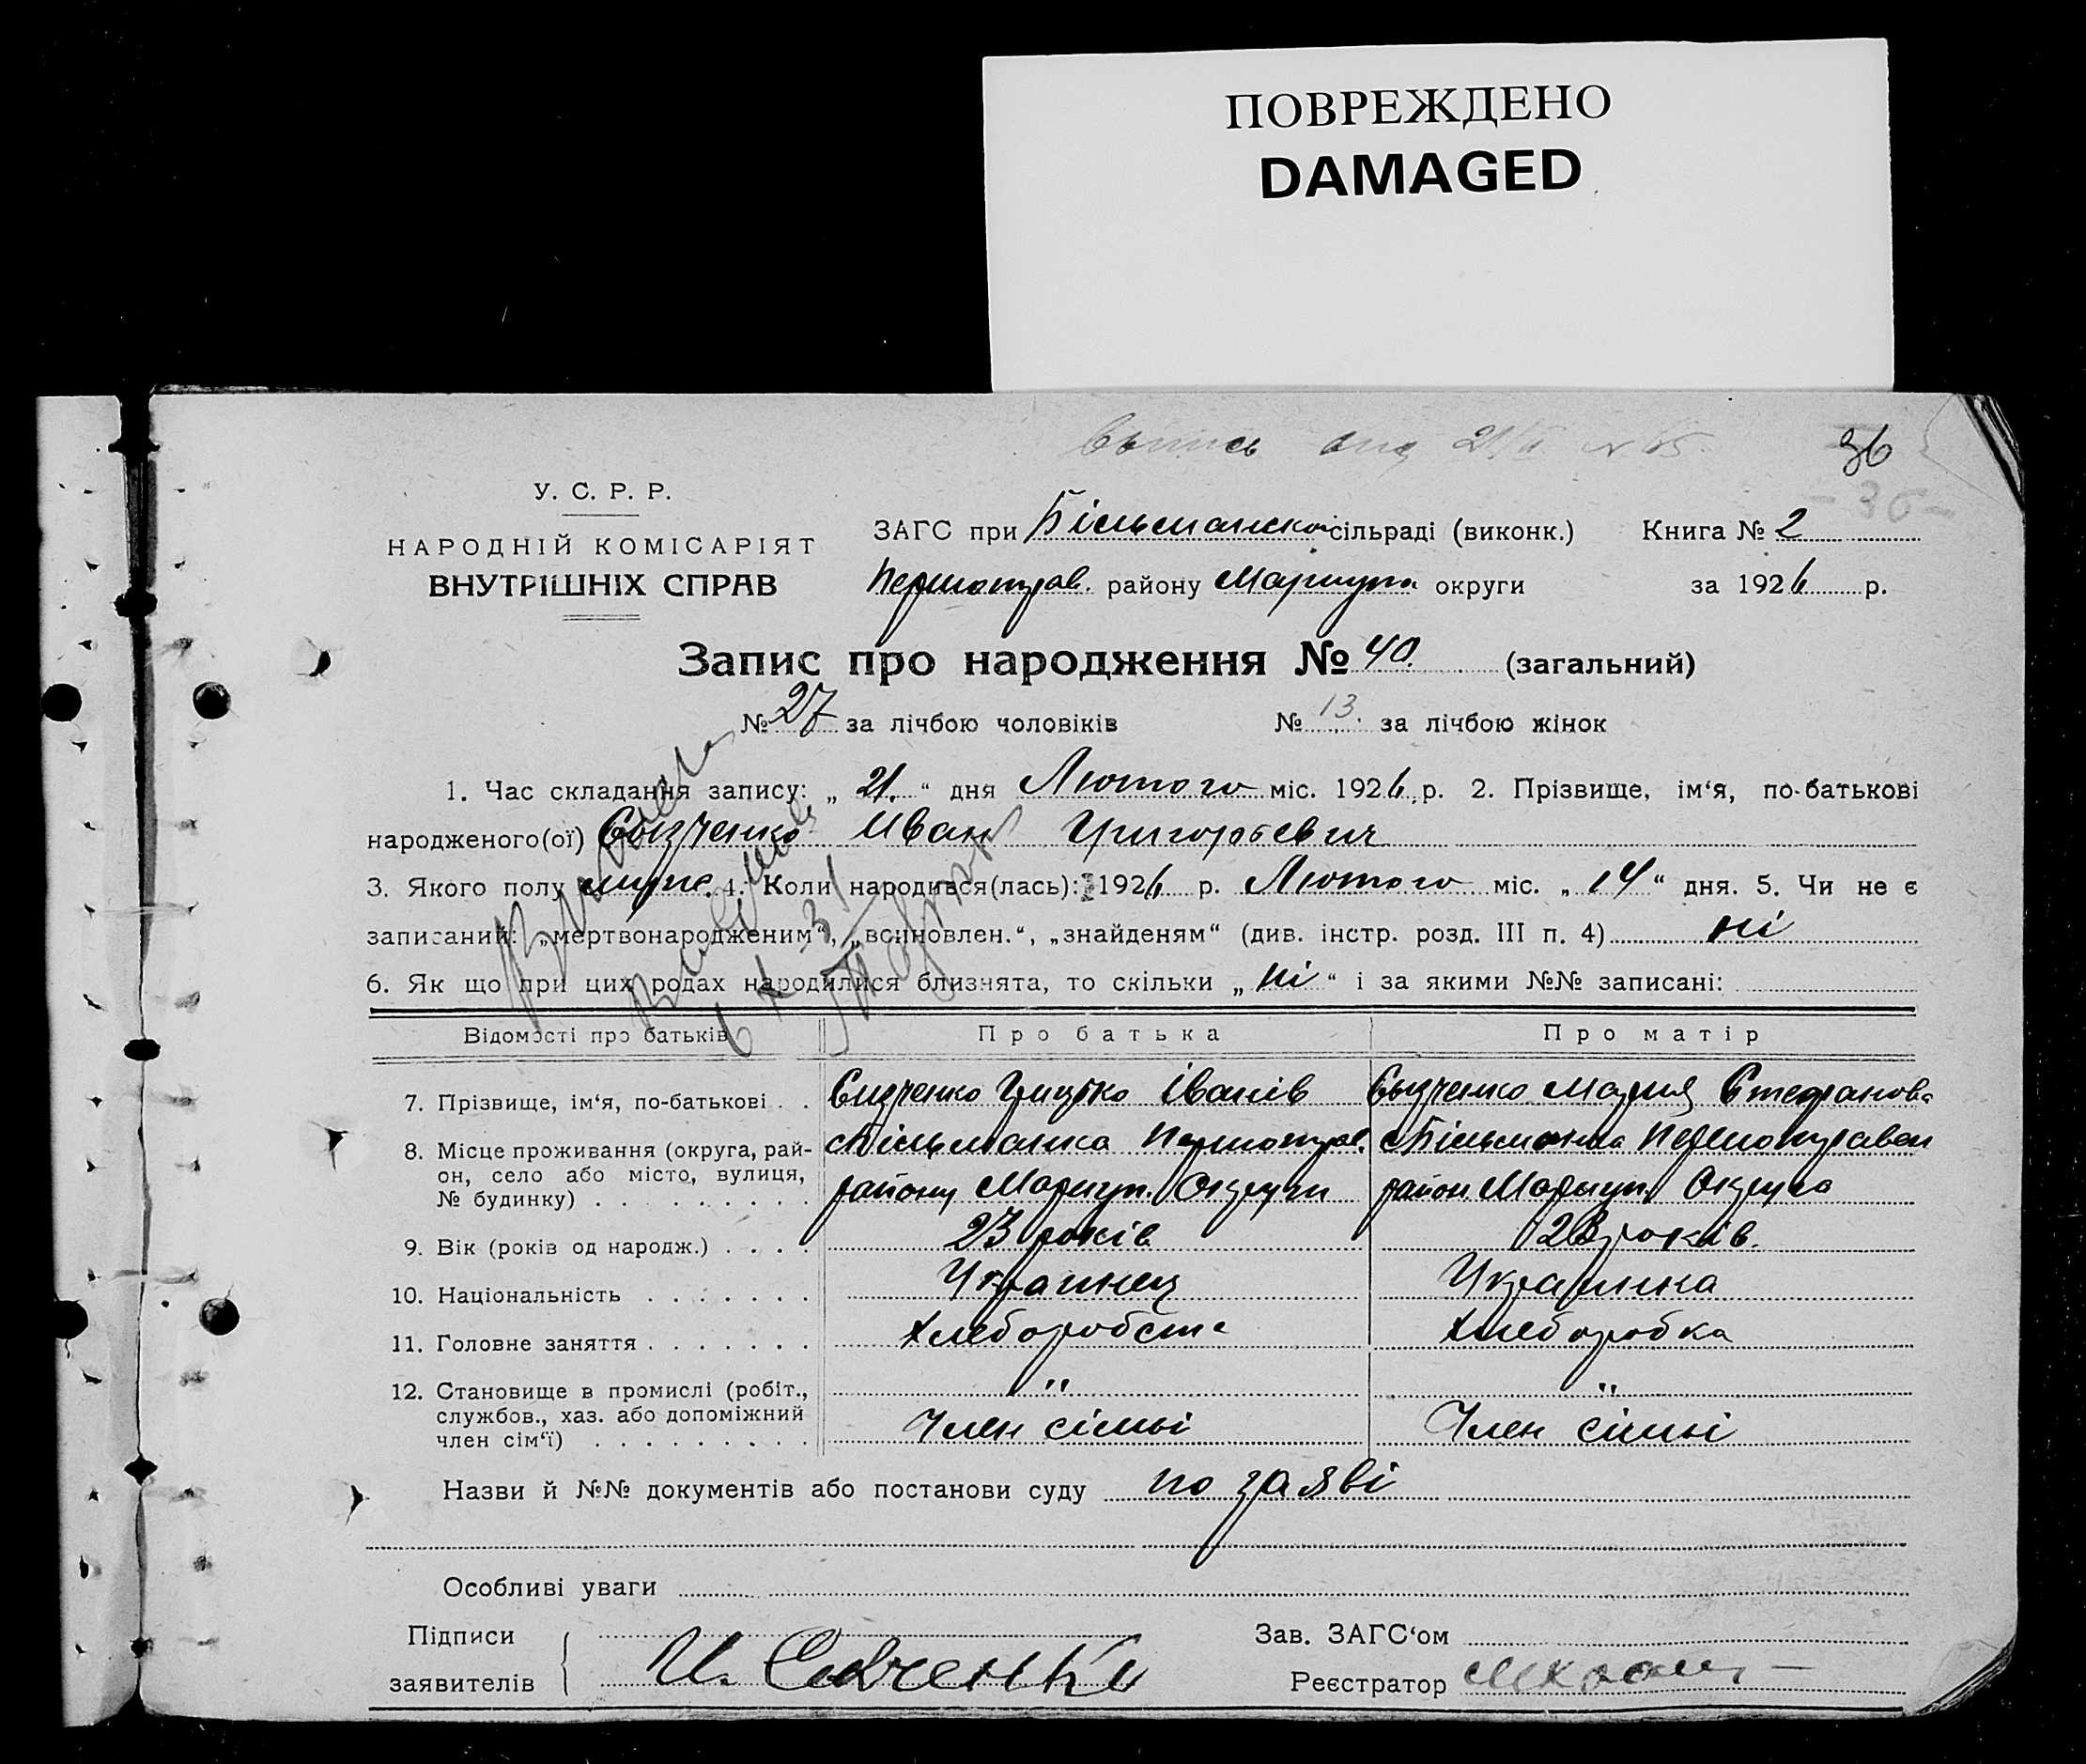 ПОВРЕЖДЕНО
DAMAGED
36
- 36 -
У. С. Р. Р.
НАРОДНІЙ КОМІСАРІЯТ
ВНУТРІШНІХ СПРАВ
ЗАГС при Більманской сільраді (виконк.) Книга № 2
Першотрав. району Мариуп. округи за 1926 р.
Запис про народження № 40. (загальний)
№ 27 за лічбою чоловіків № 13. за лічбою жінок
1. Час складання запису: „ 21. “ дня Лютого міс. 1926 р. 2. Прізвище, ім‘я, по-батькові
народженого(ої) Иван Григорьевич
3. Якого полу муж. 4. Коли народився(лась): 1926 р. Лютого міс. „ 14 “ дня. 5. Чи не є
записаний: „мертвонародженим“, „всиновлен.“, „знайденям“ (див. інстр. розд. III п. 4) ні
6. Як що при цих родах народилися близнята, то скільки „ ні “ і за якими №№ записані:
Відомості про батьків Про батька Про матір
7. Прізвище, ім‘я, по-батькові . . Грицько Іванів Мария Стефанова
8. Місце проживання (округа, рай- с Більманка Першотрав. с Більманка Першотравен
он, село або місто, вулиця,
№ будинку) . . . . . . . . . району Мариуп. Округи район Мариуп. Округа
9. Вік (років од народж.) . . . . 23 років 23 років.
10. Національність . . . . . . . Украинец Украинка
11. Головне заняття . . . . . . . Хлеборобств Хлеборобка
12. Становище в промислі (робіт., " "
службов., хаз. або допоміжний
член сім‘ї) . . . . . . . . . Член сімьі Член сімьі
Назви й №№ документів або постанови суду по заяві
Особливі уваги
Підписи
заявителів И.
Зав. ЗАГС‘ом
Реєстратор